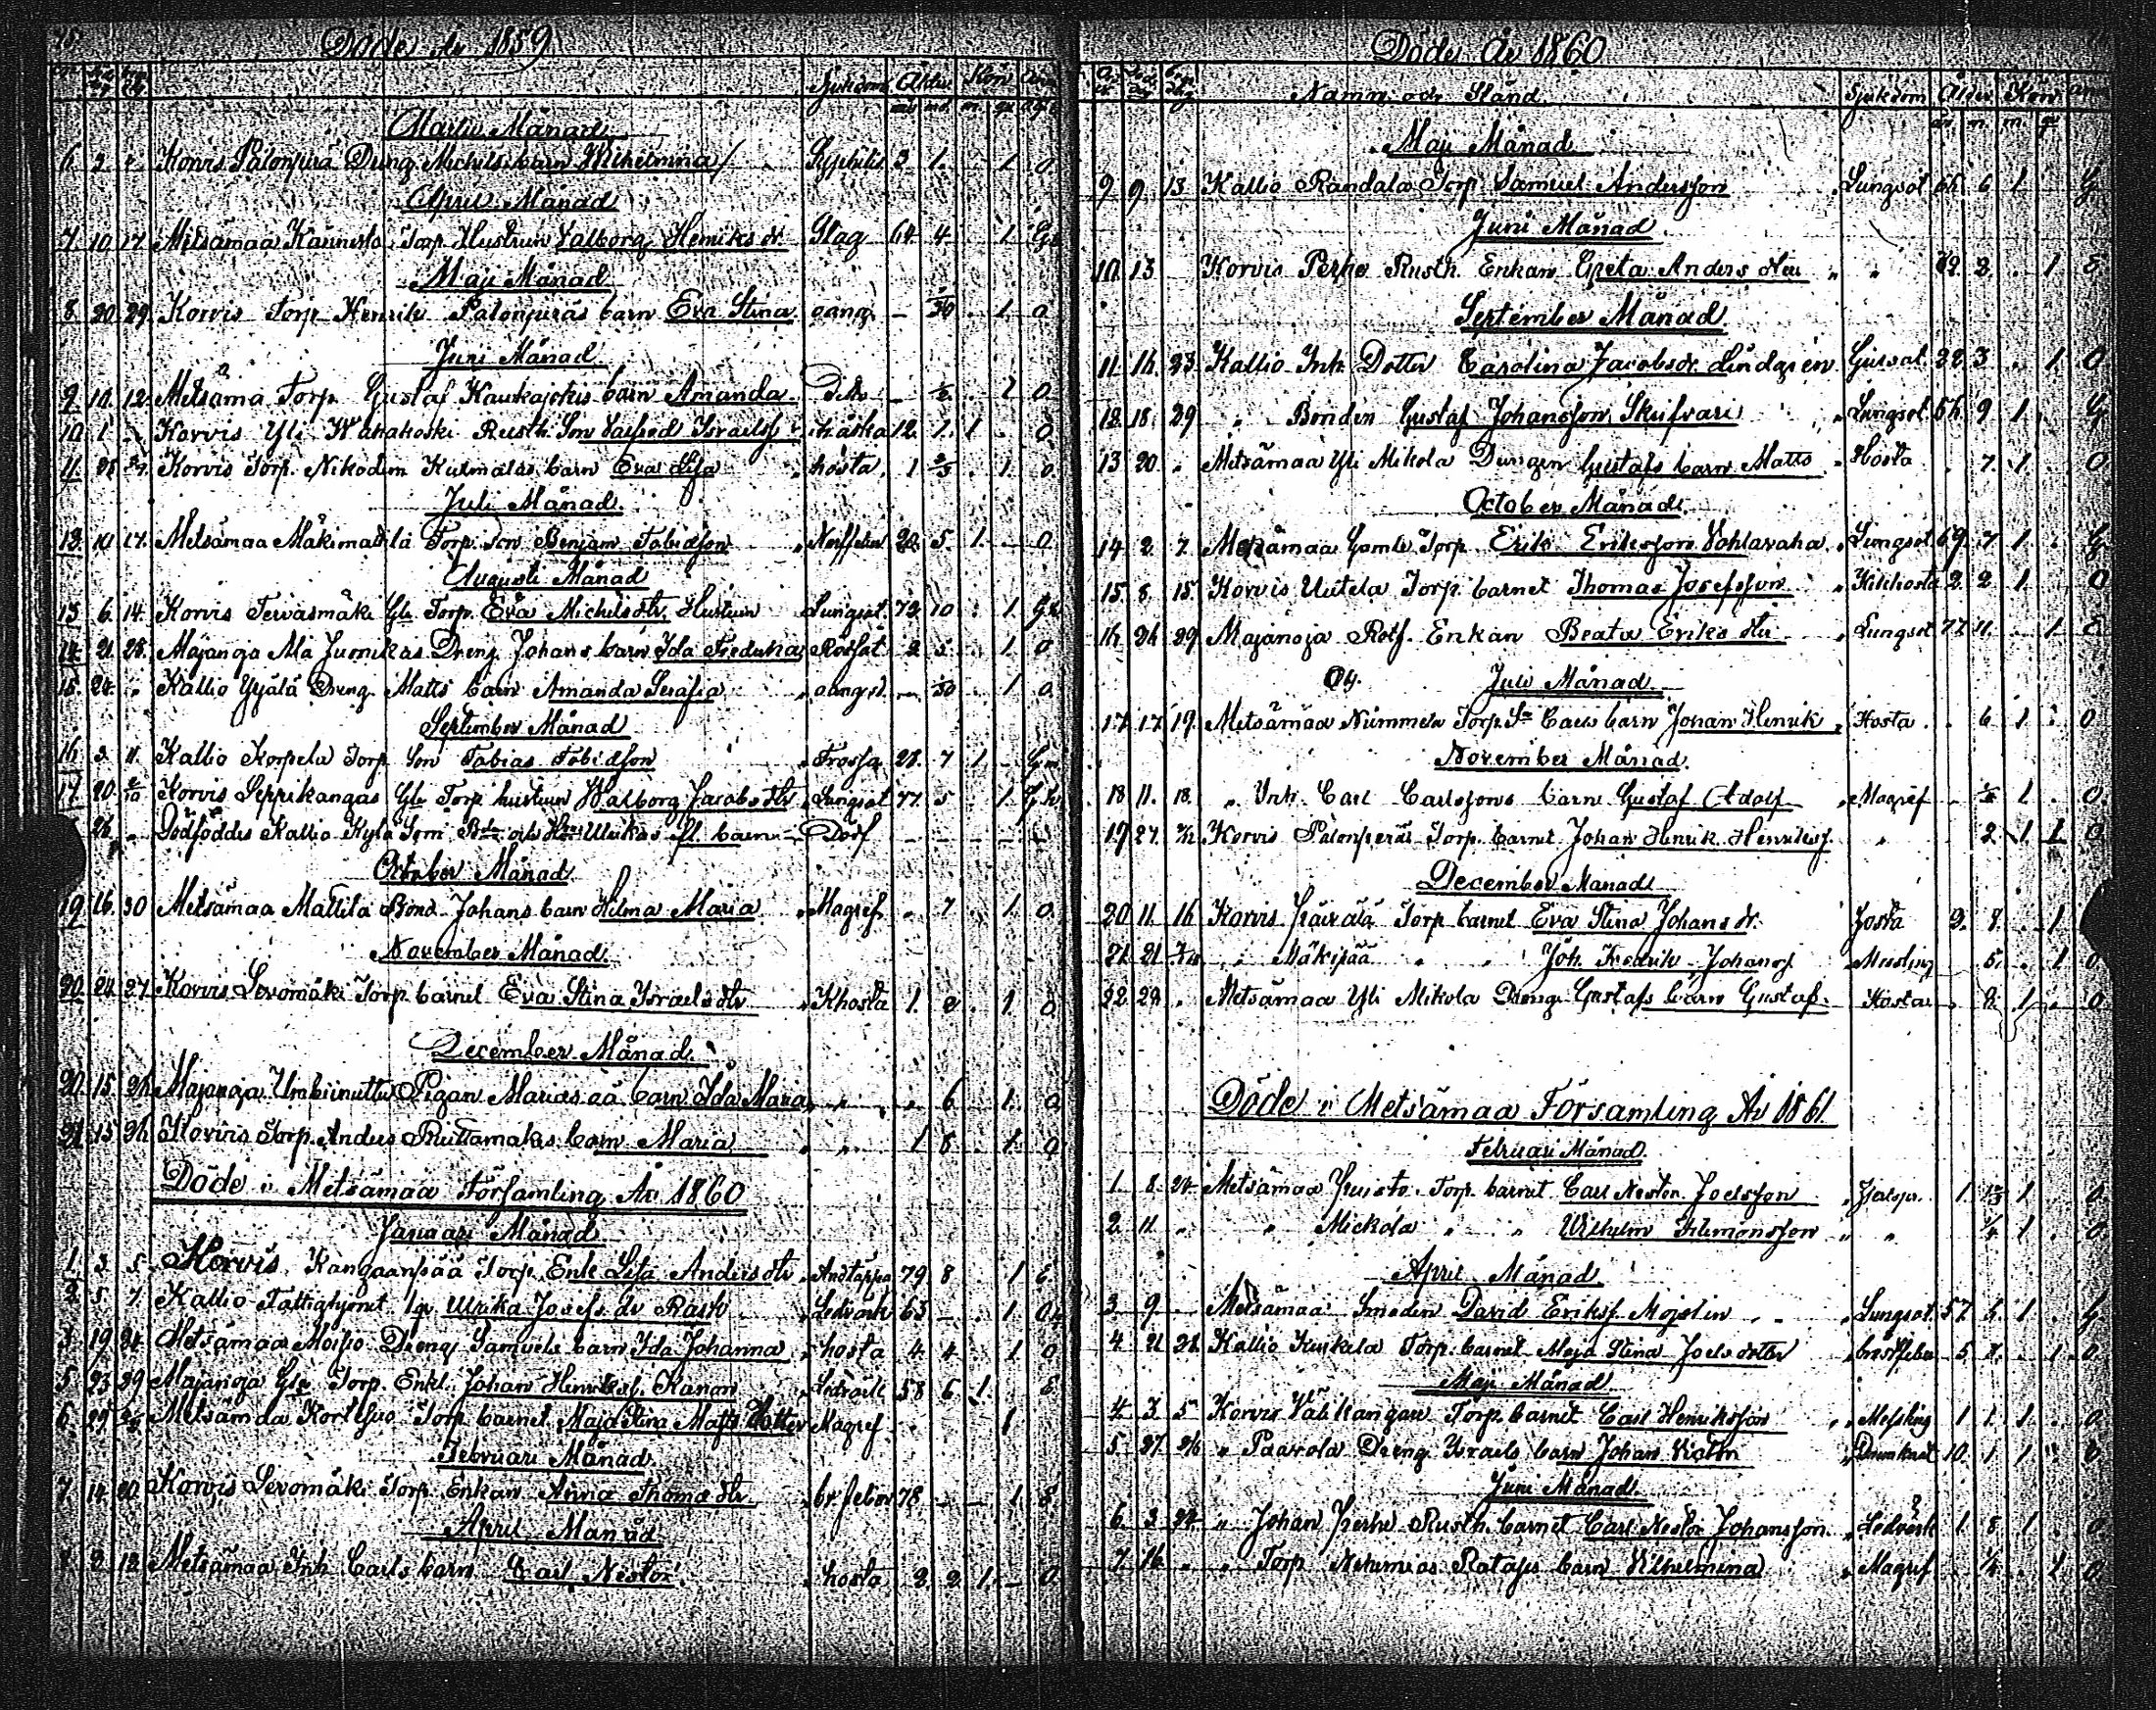 Döde År 1859
Sjukdom Ålder Kön
Martii Månad
6 2 Korvis Palonperä Dreng Michels barn Wilhelmina Syphilis 2 1 1 0
April Månad
7 10 17 Metsämaa Kaunisto Torp Hustrun Valborg Henriks dr Slag 64 4 1
Maji Månad
8 20 29 Korvis Torp Henrik Palonperäs barn Eva Stina oang. 1 0
Juni Månad
9 10 12 Metsäma Torp Gustaf Kaukajotkis barn Amanda Dito 1 0
10 1 Korvis Yli Wahahoski Rusth Son Israelss 12 1 1 0
11 Korvis Torp. Nikodem Kulmalas barn Eva Lisa hosta 1 1 0
Juli Månad
12 10 17 Metsämaa Mäkimattila Torp Son Benjam Tobidsson 20 5 1 0
Augusti Månad
13 6 14 Korvis Tervasmäki Gle Torp. Eva Michelsdtr, Hustrun Lungsot 72 10 1
14 21 28 Majanoja Dreng Johans barn Ida Fredrika Rödsot 2 5 1 0
15 24 Kallio Yjälä Dreng Matts barn Amanda Serafia oang 1 0
September Månad
16 3 11 Kallio Korpela Torp Son Tobias Tobidsson Frossa 28 7 1
17 20 Korvis Seppikangas Gle Torp hustrun Walborg Jacobsdtr Lungsot 77 5 1
26 Dödföddes Kallio Kylä barn Döf
October Månad
19 16 30 Metsämaa Mattila Bond Johans barn Hilma Maria Magref 7 1 0
November Månad
20 24 27 Korvis Levomäki Torp barnet Eva Stina Israelsdtr Khosta 1 2 1 0
December Månad
20 15 26 Majanoja Pigan Marias oä barn Ida Maria 6 1 0
21 15 26 Korvis Torp. Anders Ruttamakis barn Maria 1 8 1 0
Döde i Metsämaa Församling År 1860
Januari Månad
1 3 5 Korvis Kangaanpää Torp Enk Lisa Andersdtr Andtäppa 79 8 1 E
2 5 7 Kallio Fattighjonet Ulrika Josefs dr Rask Ledvärk 63 1
3 19 24 Metsämaa Moisio Dreng Samuels barn Ida Johanna hosta 4 4 1 0
5 23 29 Majanoja Gle Torp. Enkl. Johan Henrikss Kanon Ledvärk 58 6 1 E
6 29 Metsämaa Torp barnet Maja Stina Matts Dotter Magref 1
Februari Månad
7 14 20 Korvis Levomäki Torp Enkan Anna Thomasdtr br. feber 78 1 E
April Månad
8 2 12 Metsämaa Inh Carls barn Carl Nestor hosta 2 2 1 0
Döde År 1860
Namn och Stånd Sjukdom Ålder Kön
Maji Månad
9 9 13 Kallio Randala Torp Samuel Andersson Lungsot 6 1 G
Juni Månad
10 13 Korvis Perho Rusth. Enkan Greta Anders dtr 1 E
September Månad
11 16 23 Kallio Inh Dotter Carolina Jacobsdr Lindgren 22 3 1 0
12 18 29 Bonden Gustaf Johansson Skufvari Lungsot 56 9 1 G
13 20 Metsämaa Yli Mikola Drengen Gustafs barn Matts Hosta 7 1 0
October Månad
14 2 7 Metsämaa Gamle Torp Erik Eriksson Vohlavaha Lungsot 69 7 1 G
15 8 15 Korvis Uutela Torp barnet Thomas Josefsson Kikhosta 2 2 1 0
16 26 29 Majanoja Rotf. Enkan Beata Eriks dtr Lungsot 77 11 1 E
Juli Månad
17 17 19 Metsämaa Nummela Torp Carls barn Johan Henrik Hosta 6 1 0
November Månad
18 11 18 Inh. Carl Carlssons barn Gustaf Adolf Magref 1 0
19 27 Korvis Palonperäs Torp. barnet Johan Henrik Henrikss 2 1 1 0
December Månad
20 11 16 Korvis Torp barnet Eva Stina Johansdr. Hosta 2 8 1
21 21 Mäkipää Joh Fredrik Johanss Messling 5 1 0
22 29 Metsämaa Yli Mikola Dreng Gustafs barn Gustaf Hosta 8 1 0
Döde i Metsämaa Församling År 1861
Februari Månad
1 8 24 Metsämaa Torp. barnet Carl Nestor Joelsson 1 1 0
2 11 Mickola Wilhelm Filemonsson 1/4 1 0
April Månad
3 9 Metsämaa Smeden David Erikss. Mojolin Lungsot 57 6 1 G
4 21 28 Kallio Torp. barnet Maja Stina Joelsdotter bröstfeber 5 1 0
Maji Månad
4 3 5 Korvis Välikangas Torp barnet Carl Henriksson Messling 1 1 1 0
5 27 26 Paavola Dreng Israels barn Johan Victor Drunknat 10 1 1 0
Juni Månad
6 3 24 Johan Perho Rusth. barnet Carl Nestor Johansson Ledvärk 1 8 1 0
7 16 Torp Nehemias Ratajas barn Vilhelmina Magref 1/4 1 0